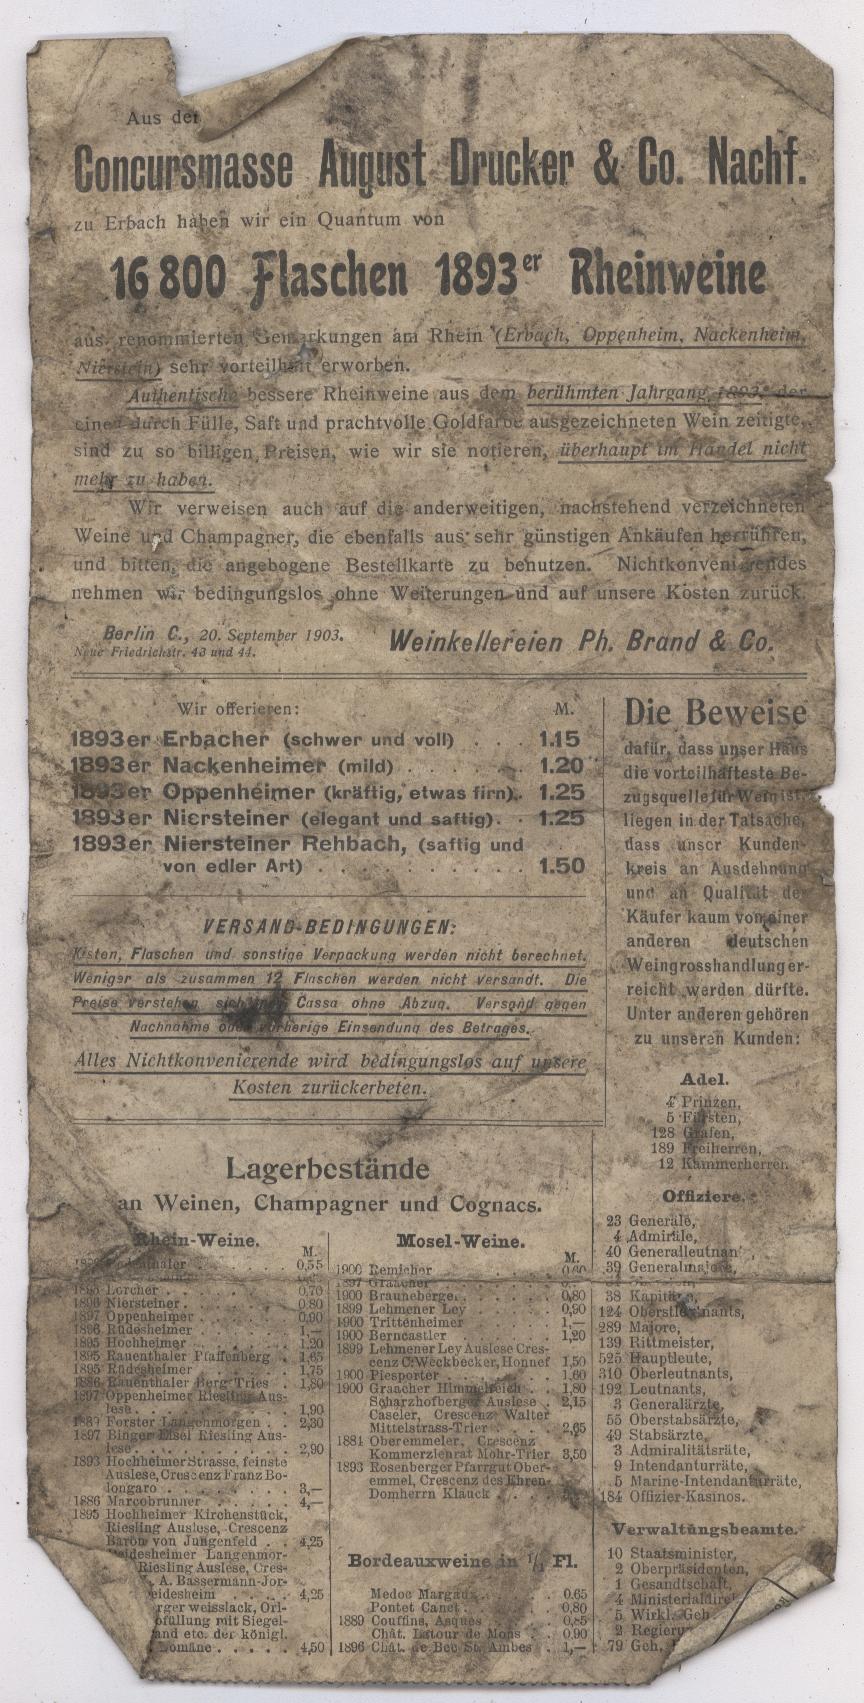 Aus der
Concursmasse August Drucker & Co. Nachf.
zu Erbach haben wir ein Quantum von
16 800 Flaschen 1893er Rheinweine
aus renommierten Gemarkungen am Rhein (Erbach, Oppenheim, Nackenheim,
Nierstein) sehr vorteilhaft erworben.
Authentische bessere Rheinweine aus dem berühmten Jahrgang 1893, der
einen durch Fülle, Saft und prachtvolle Goldfarbe ausgezeichneten Wein zeitigte,
sind zu so billigen Preisen, wie wir sie notieren, überhaupt im Handel nicht
mehr zu haben.
Wir verweisen auch auf die anderweitigen, nachstehend verzeichneten
Weine und Champagner, die ebenfalls aus sehr günstigen Ankäufen herrühren,
und bitten, die angebogene Bestellkarte zu benutzen. Nichtkonvenierendes
nehmen wir bedingungslos ohne Weiterungen und auf unsere Kosten zurück.
Berlin C., 20. September 1903.
Neue Friedrichstr. 43 und 44.
Weinkellereien Ph. Brand & Co.
Wir offerieren: M.
1893er Erbacher (schwer und voll) . . . 1.15
1893er Nackenheimer (mild) . . . . . . 1.20
1893er Oppenheimer (kräftig, etwas firn). . 1.25
1893er Niersteiner (elegant und saftig). . 1.25
1893er Niersteiner Rehbach, (saftig und
von edler Art) . . . . . . . . . . 1.50
VERSAND-BEDINGUNGEN:
Kisten, Flaschen und sonstige Verpackung werden nicht berechnet.
Weniger als zusammen 12 Flaschen werden nicht versandt. Die
Preise verstehen sich Cassa ohne Abzug. Versand gegen
Nachnahme oder vorherige Einsendung des Betrages.
Alles Nichtkonvenierende wird bedingungslos auf unsere
Kosten zurückerbeten.
Die Beweise
dafür, dass unser Haus
die vorteilhafteste Be-
zugsquelle für Wein ist,
liegen in der Tatsache,
dass unser Kunden-
kreis an Ausdehnung
und an Qualität der
Käufer kaum von einer
anderen deutschen
Weingrosshandlung er-
reicht werden dürfte.
Unter anderen gehören
zu unseren Kunden:
Adel.
4 Prinzen,
5 Fürsten,
128 Grafen,
189 Freiherren,
12 Kammerherren.
Offiziere.
23 Generäle,
4 Admiräle,
40 Generalleutnan
39 Generalmajore,
38 Kapitäne,
124 Oberstleutnants,
289 Majore,
139 Rittmeister,
525 Hauptleute,
310 Oberleutnants,
192 Leutnants,
3 Generalärzte,
55 Oberstabsärzte,
49 Stabsärzte,
3 Admiralitätsräte,
9 Intendanturräte,
5 Marine-Intendanturräte,
184 Offizier-Kasinos.
Verwaltungsbeamte.
10 Staatsminister,
2 Oberpräsidenten,
1 Gesandtschaft,
4 Ministerialdire
5 Wirkl. Geh
2 Regieru
79 Geh.
Lagerbestände
an Weinen, Champagner und Cognacs.
Rhein-Weine.
M.
0,55
1895 Lorcher . . . . . . . . . 0,70
1896 Niersteiner . . . . . . . 0,80
1897 Oppenheimer . . . . . . . 0,90
1896 Rüdesheimer . . . . . . . 1,—
1895 Hochheimer . . . . . . . 1,20
1895 Rauenthaler Pfaffenberg . 1,65
1895 Rüdesheimer . . . . . . . 1,75
1886 Rauenthaler Berg Tries . . 1,80
1897 Oppenheimer Riesling Aus-
lese . . . . . . . . . . 1,90
1889 Forster Langenmorgen . . 2,30
1897 Binger Eisel Riesling Aus-
lese . . . . . . . . . . 2,90
1893 Hochheimer Strasse, feinste
Auslese, Crescenz Franz Bo-
longaro . . . . . . . . . 3,—
1886 Marcobrunner . . . . . . 4,—
1895 Hochheimer Kirchenstück,
Riesling Auslese, Crescenz
Baron von Jungenfeld . . 4,25
eidesheimer Langenmor-
Riesling Auslese, Cres-
A. Bassermann-Jor-
eidesheim . . . . 4,25
rger weisslack, Ori-
füllung mit Siegel-
and etc. der königl.
Domäne . . . . . 4,50
Mosel-Weine.
M.
1900 Remicher . . . . . . .
1897 Graacher . . . . . . .
1900 Brauneberger . . . . . . 0,80
1899 Lehmener Ley . . . . . . 0,90
1900 Trittenheimer . . . . . . 1,—
1900 Berncastler . . . . . . . 1,20
1899 Lehmener Ley Auslese Cres-
cenz C. Weckbecker, Honnef 1,50
1900 Piesporter . . . . . . . 1,60
1900 Graacher Himmelreich . . 1,80
Scharzhofberger Auslese . 2,15
Caseler, Crescenz Walter
Mittelstrass-Trier . . . . 2,65
1884 Oberemmeler, Crescenz
Kommerzienrat Mohr-Trier 3,50
1893 Rosenberger Pfarrgut Ober-
emmel, Crescenz des Ehren-
Domherrn Klauck . . . .
Bordeauxweine in 1/1 Fl.
Medoc Margaux . . . . . 0.65
Pontet Canet . . . . . . 0,80
1889 Couffins, Asques . . . . 0,85
Chât. Latour de Mons . . 0.90
1896 Chât. de Bec St. Ambes . 1,—